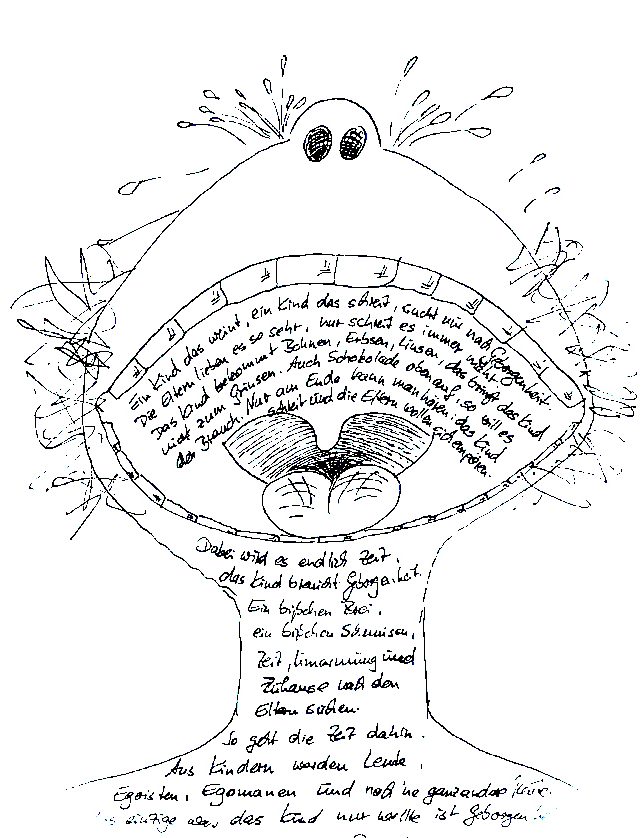 Ein Kind das weint, ein Kind das schreit, sucht nur nach Geborgenheit.
Die Eltern lieben es so sehr, nur schreit es immer
Das Kind bekommt Bohnen, Erbsen, Linsen, das bringt das Kind
nicht zum Grinsen. Auch Schokolade oben auf, so will es
der Brauch. Nur am Ende kann man hören: das Kind
schreit und die Eltern wollen sich empören.
Dabei wird es endlich Zeit,
das Kind braucht Geborgenheit.
Ein bißchen
ein bißchen
Zeit, Umarmung und
Zuhause nach den
Eltern
So geht die Zeit dahin.
Aus Kindern werden Leute,
Egoisten, Egomanen und noch 'ne ganz andre
einzige was das Kind nur wollte ist